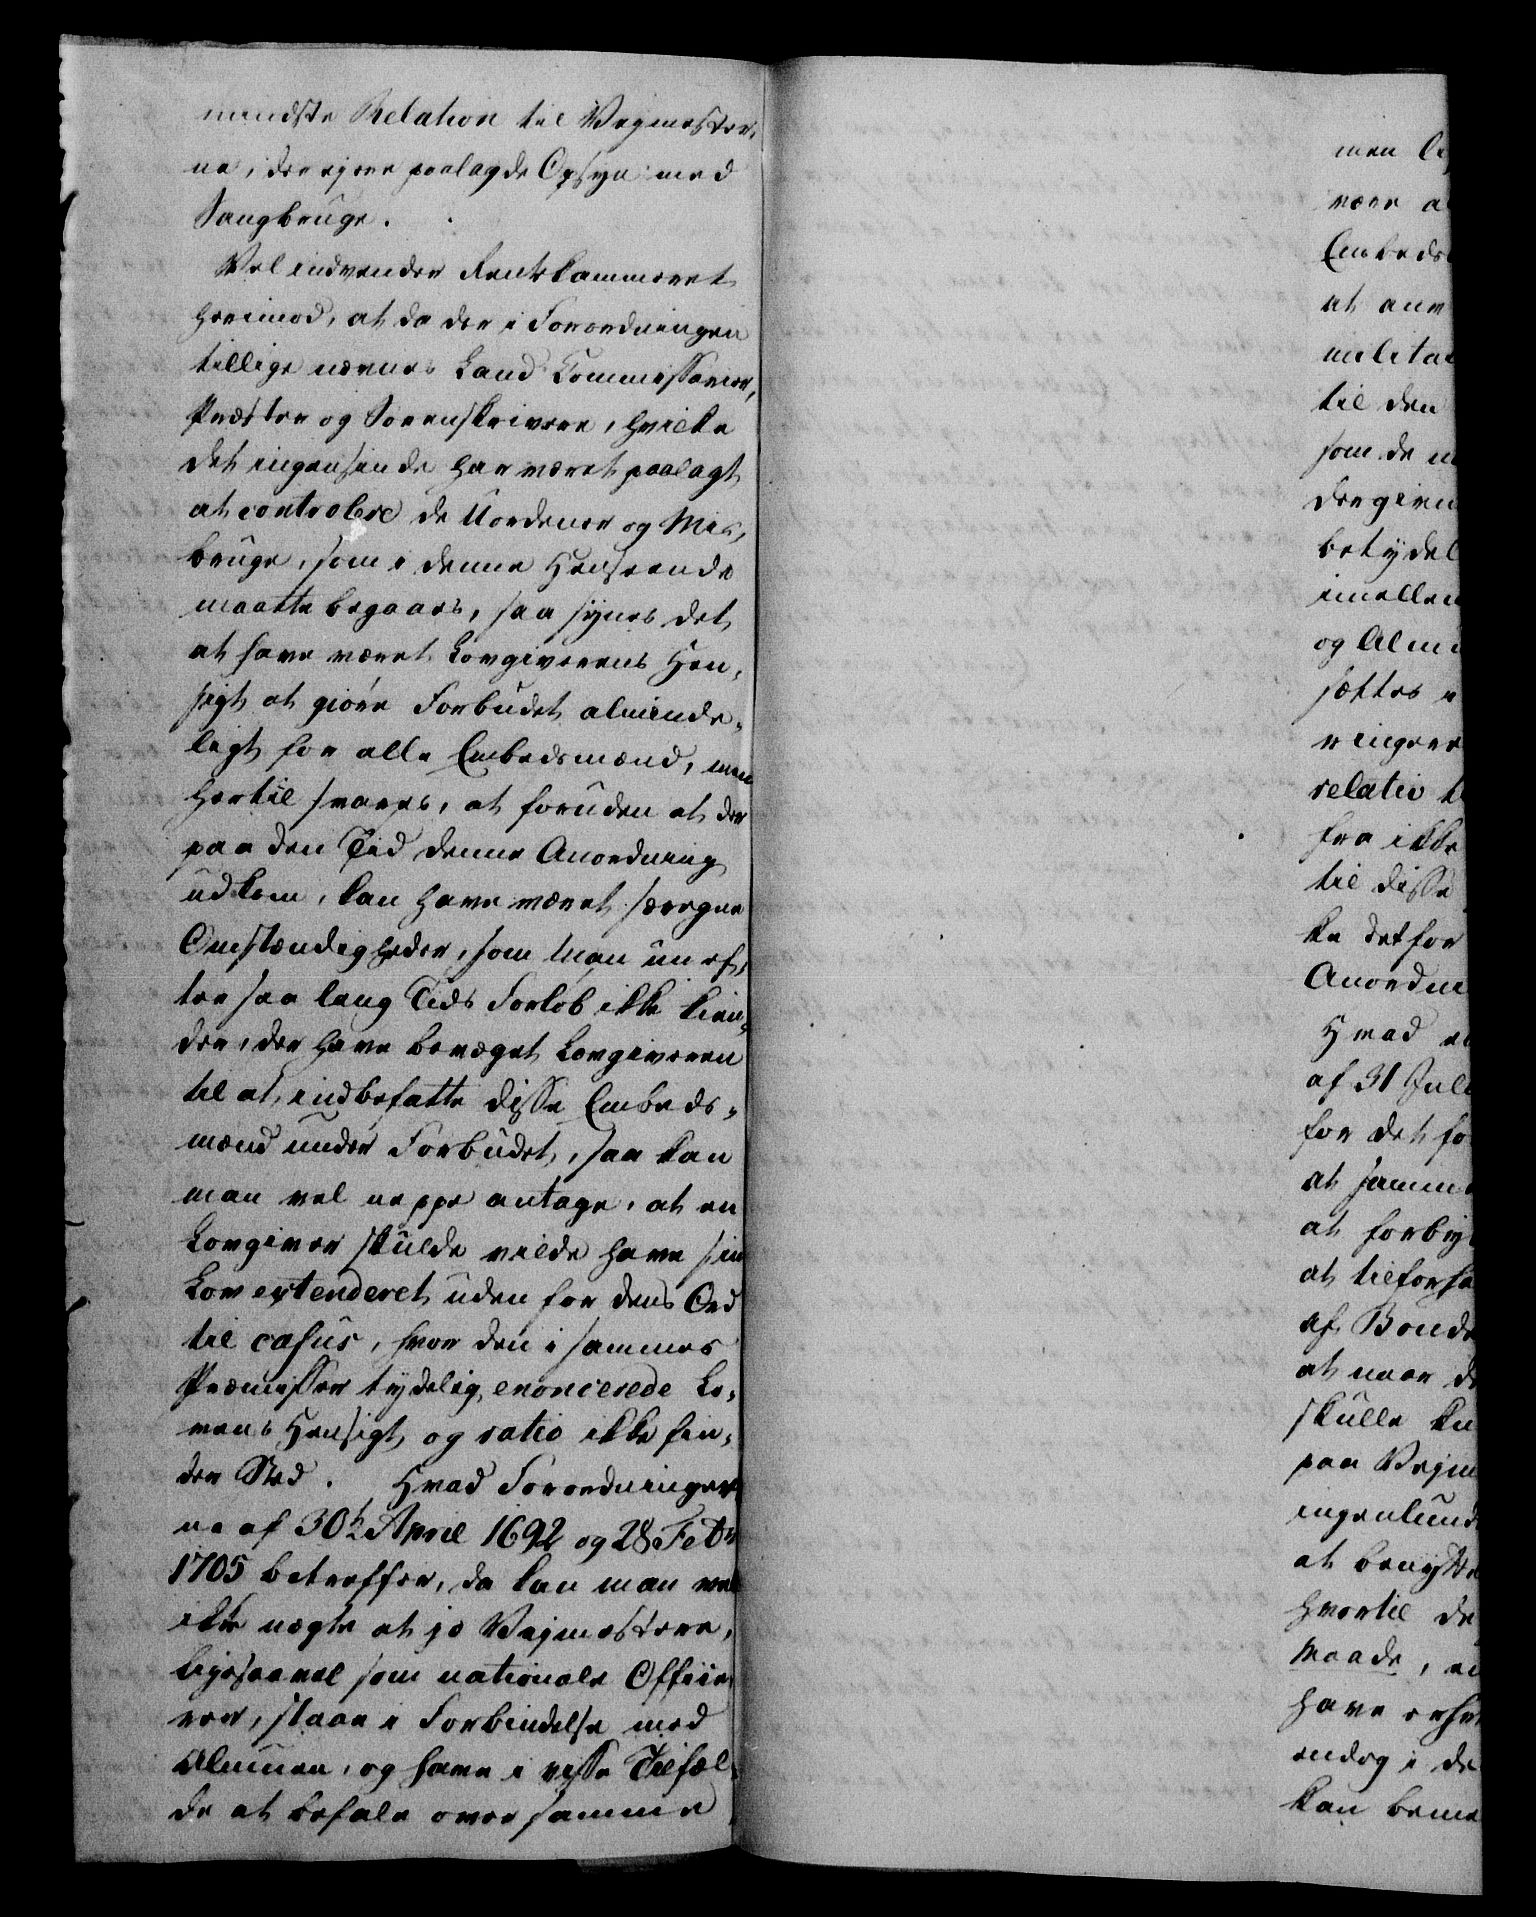 mindste Relation til Vejmester,
ne, der ejere paalagde Opsyn med
Saugbruge.
Vel indvender Rentekammeret
herimod, at da der i Forordningen
tillige nævnes Land Commissarier,
Præster og Sorenskrivere, hvilke
det ingensinde har været paalagt
at controlere de Uordener og Mis,
bruge, som i denne Henseende
maatte begaaes, saa synes det
at have været Lovgiverens Hen,
sigt at giøre Forbudet alminde,
ligt for alle Embedsmænd, men
hertil svares, at foruden at der
paa den Tid denne Anordning
udkom, kan have været særegne
Omstændigheder, som man nu ef,
ter saa lang Tids Forløb ikke kien,
der, der have bevæget Lovgiveren
til at indbefatte disse Embeds,
mænd under Forbudet, saa kan
man vel neppe antage, at en
Lovgiver skulde vilde have sin
Lov extenderet uden for dens Ord
til casus, hvor den i sammes
Præmisser tydelig enoncerede Lo,
vens Hensigt og ratio ikke fin,
der Sted. Hvad Forordninger
ne af 30te April 1692 og 28 Febr
1705 betreffer, da kan man vel
ikke nægte at jo Vejmestere,
ligesaavel som nationale Officie,
rer, staae i Forbindelse med
Almuen, og have i visse Tilfæl,
de at befale over samme
men
være a
Embeds
at anv
militai
til den
som de
der givn
betydel
imellem
og Almu
sættes
ringere
relativ
fra ikke
til disse
ke det for
Anordni
Hvad
af 31 Juli
for det fo
at samme
at forby
at tilforha
af Bonde
at naar d
skulle
paa Vejm
ingenlund
at benytte
hvortil de
Maade, en
have erh
endog i de
kan beme